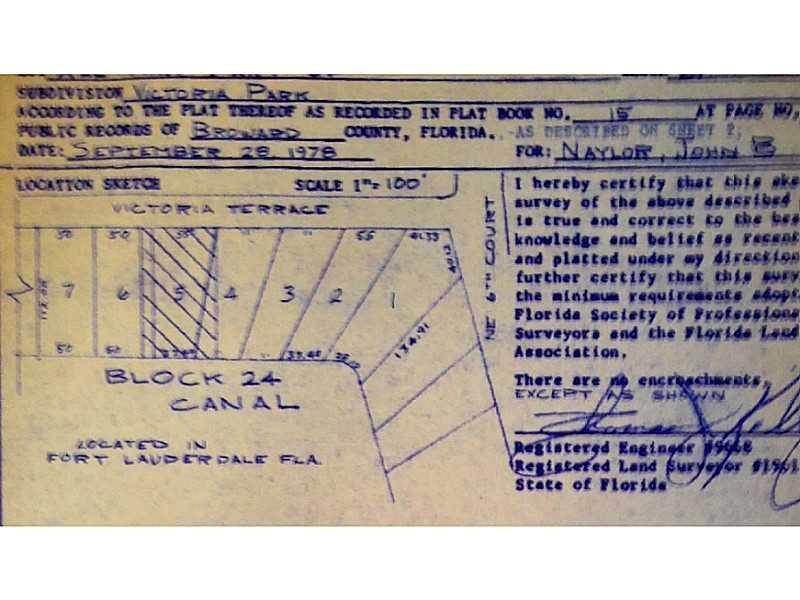 SUBDIVISION VICTORIA PARK
ACCORDING TO THE PLAT THEREOF AS RECORDED IN PLAT BOOK NO. 15 AT PAGE NO.
PUBLIC RECORDS OF BROWARD COUNTY, FLORIDA. -AS DESCRIBED ON SHEET 2,
DATE: SEPTEMBER 28 1978 FOR: NAYLOR, JOHN B
LOCATION SKETCH SCALE 1"= 100'
VICTORIA TERRACE
50 50 55 41.33
7 6 5 4 3 2 1
134.91
50 50
BLOCK 24
CANAL
LOCATED IN
FORT LAUDERDALE FLA.
NE 6TH COURT
I hereby certify that this ske
survey of the above described
is true and correct to the bes
knowledge and belief as recent
and platted under my direction
further certify that this surv
the minimum requirements adopt
Florida Society of Professiona
Surveyors and the Florida Land
Association.
There are no encroachments,
EXCEPT AS SHOWN
Registered Engineer
Registered Land Surveyor
State of Florida